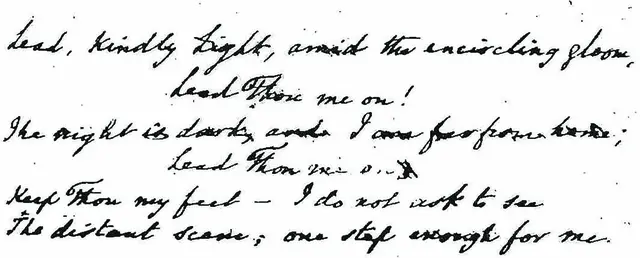 Lead, Kindly Light, amid the encircling gloom,
Lead Thou me on!
The night is dark, and I am far from home;
Lead Thou me on
Keep Thou my feet – I do not ask to see
The distant scene; one step enough for me.